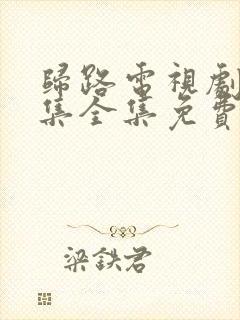 歸路電視劇
集全集免費
梁鉄君